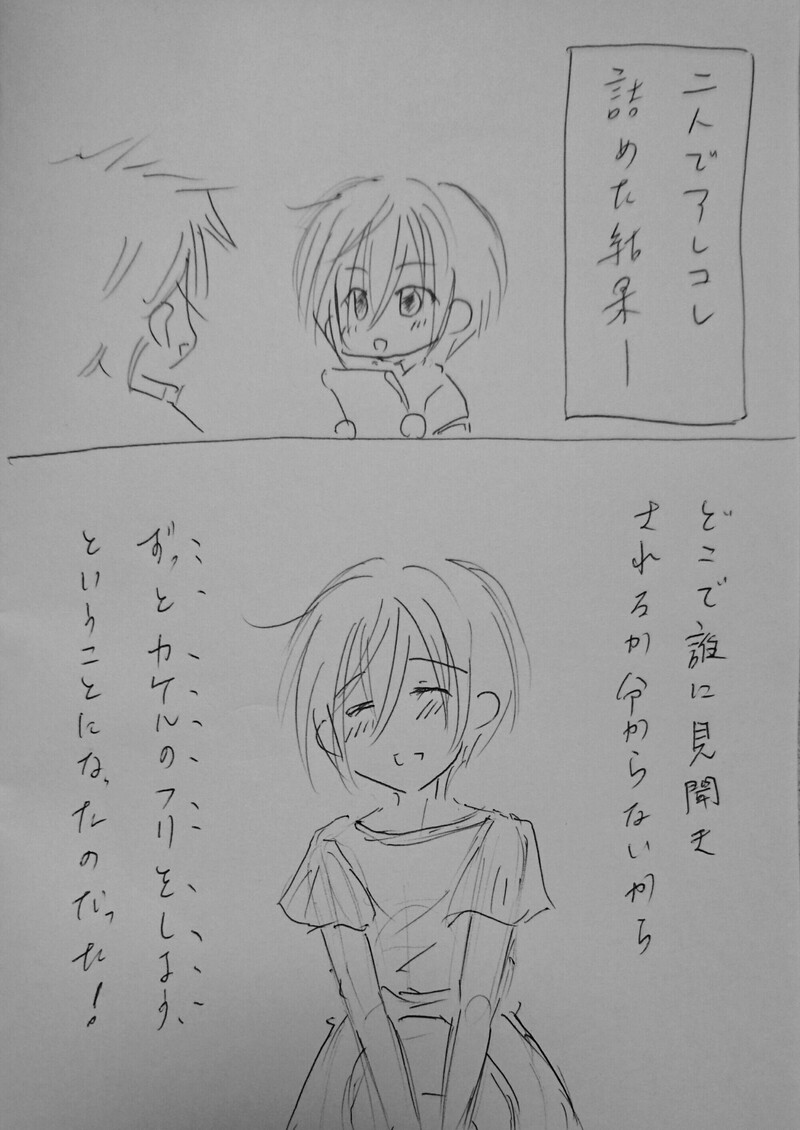 二人でアレコレ
詰めた結果ー
どこで誰に見聞き
されるか分からないから
ずっとカケルのフリをします
ということになったのだった！